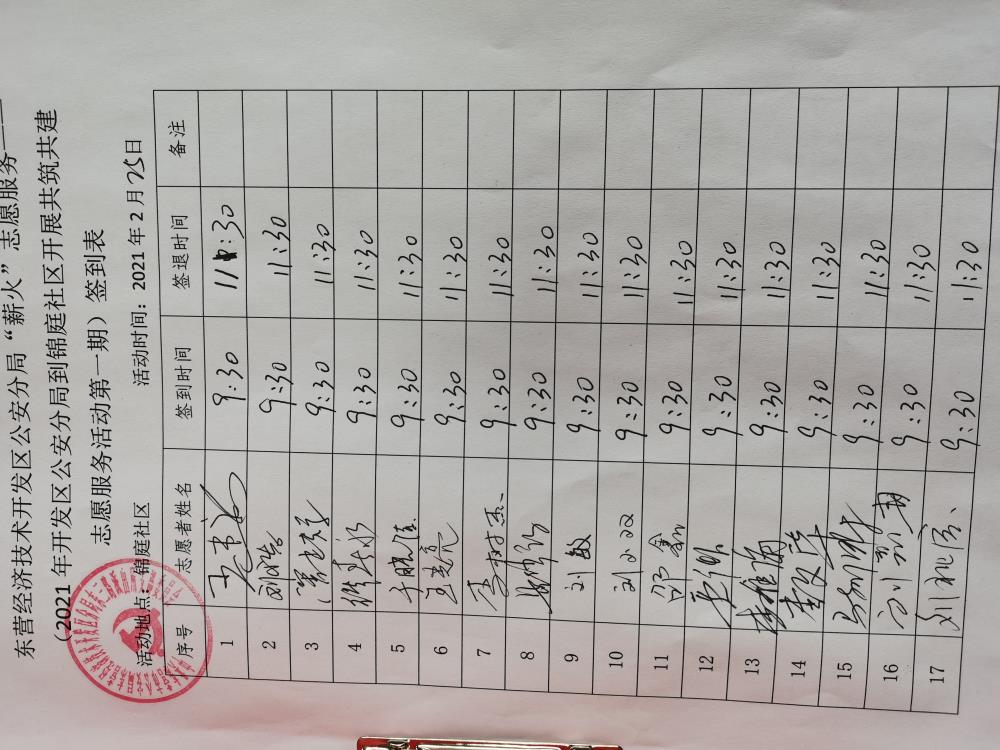 东营经济技术开发区公安分局“薪火”志愿服务——
（2021 年开发区公安分局到锦庭社区开展共筑共建
志愿服务活动第一期）签到表
活动地点：锦庭社区 活动时间：2021 年 2 月 25 日
序号 志愿者姓名 签到时间 签退时间 备注
1 9:30 11:30
2 刘浩 9:30 11:30
3 9:30 11:30
4 9:30 11:30
5 9:30 11:30
6 王亮 9:30 11:30
7 李树杰 9:30 11:30
8 9:30 11:30
9 刘敏 9:30 11:30
10 刘小双 9:30 11:30
11 邵鑫 9:30 11:30
12 9:30 11:30
13 9:30 11:30
14 9:30 11:30
15 9:30 11:30
16 9:30 11:30
17 9:30 11:30